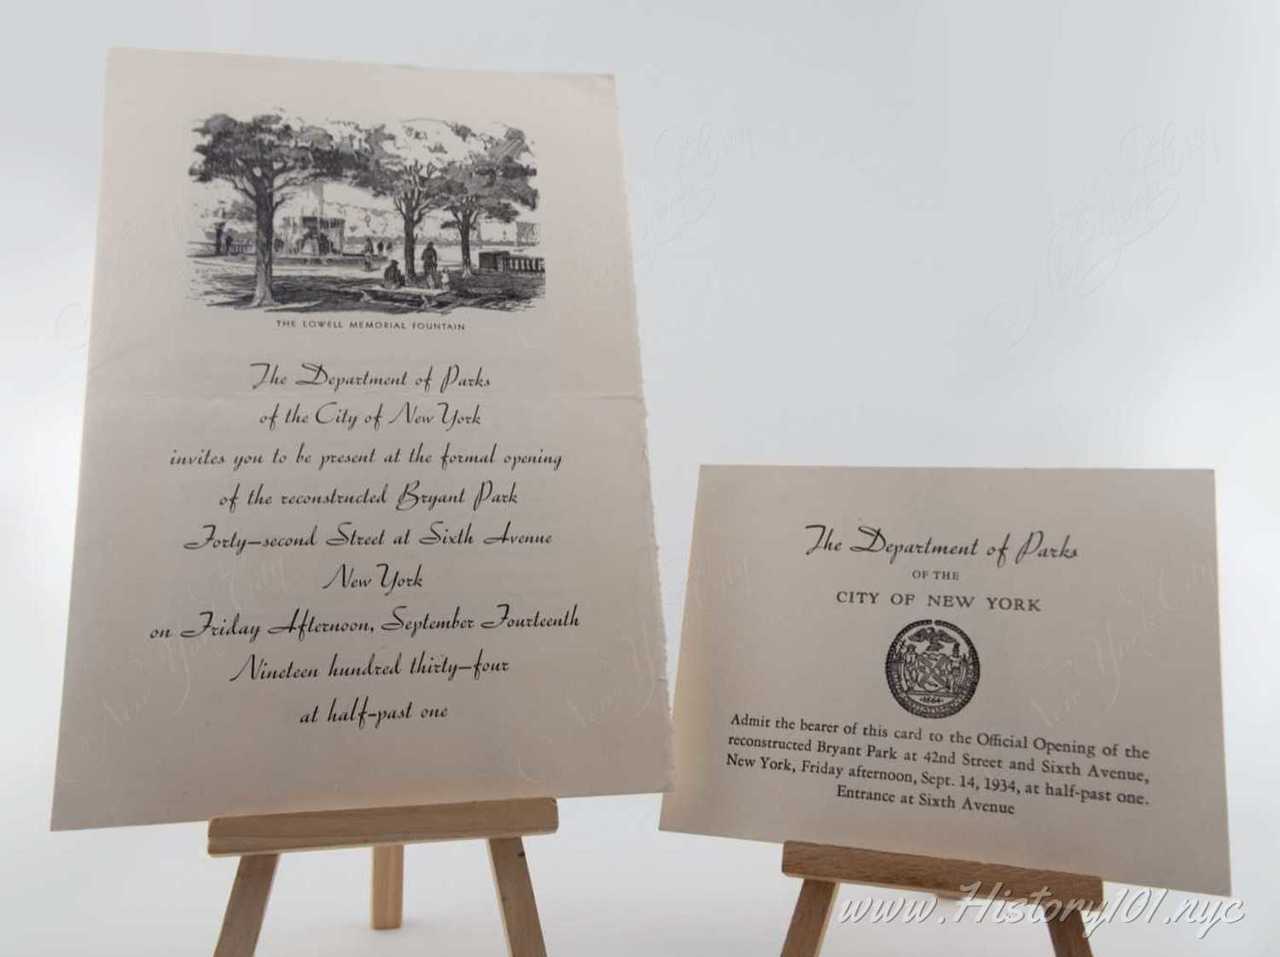 THE LOWELL MEMORIAL FOUNTAIN
The Department of Parks
of the City of New York
invites you to be present at the formal opening
of the reconstructed Bryant Park
Forty-second Street at Sixth Avenue
New York
on Friday Afternoon, September Fourteenth
Nineteen hundred thirty-four
at half-past one
The Department of Parks
OF THE
CITY OF NEW YORK
Admit the bearer of this card to the Official Opening of the
reconstructed Bryant Park at 42nd Street and Sixth Avenue,
New York, Friday afternoon, Sept. 14, 1934, at half-past one.
Entrance at Sixth Avenue
www.History101.nyc